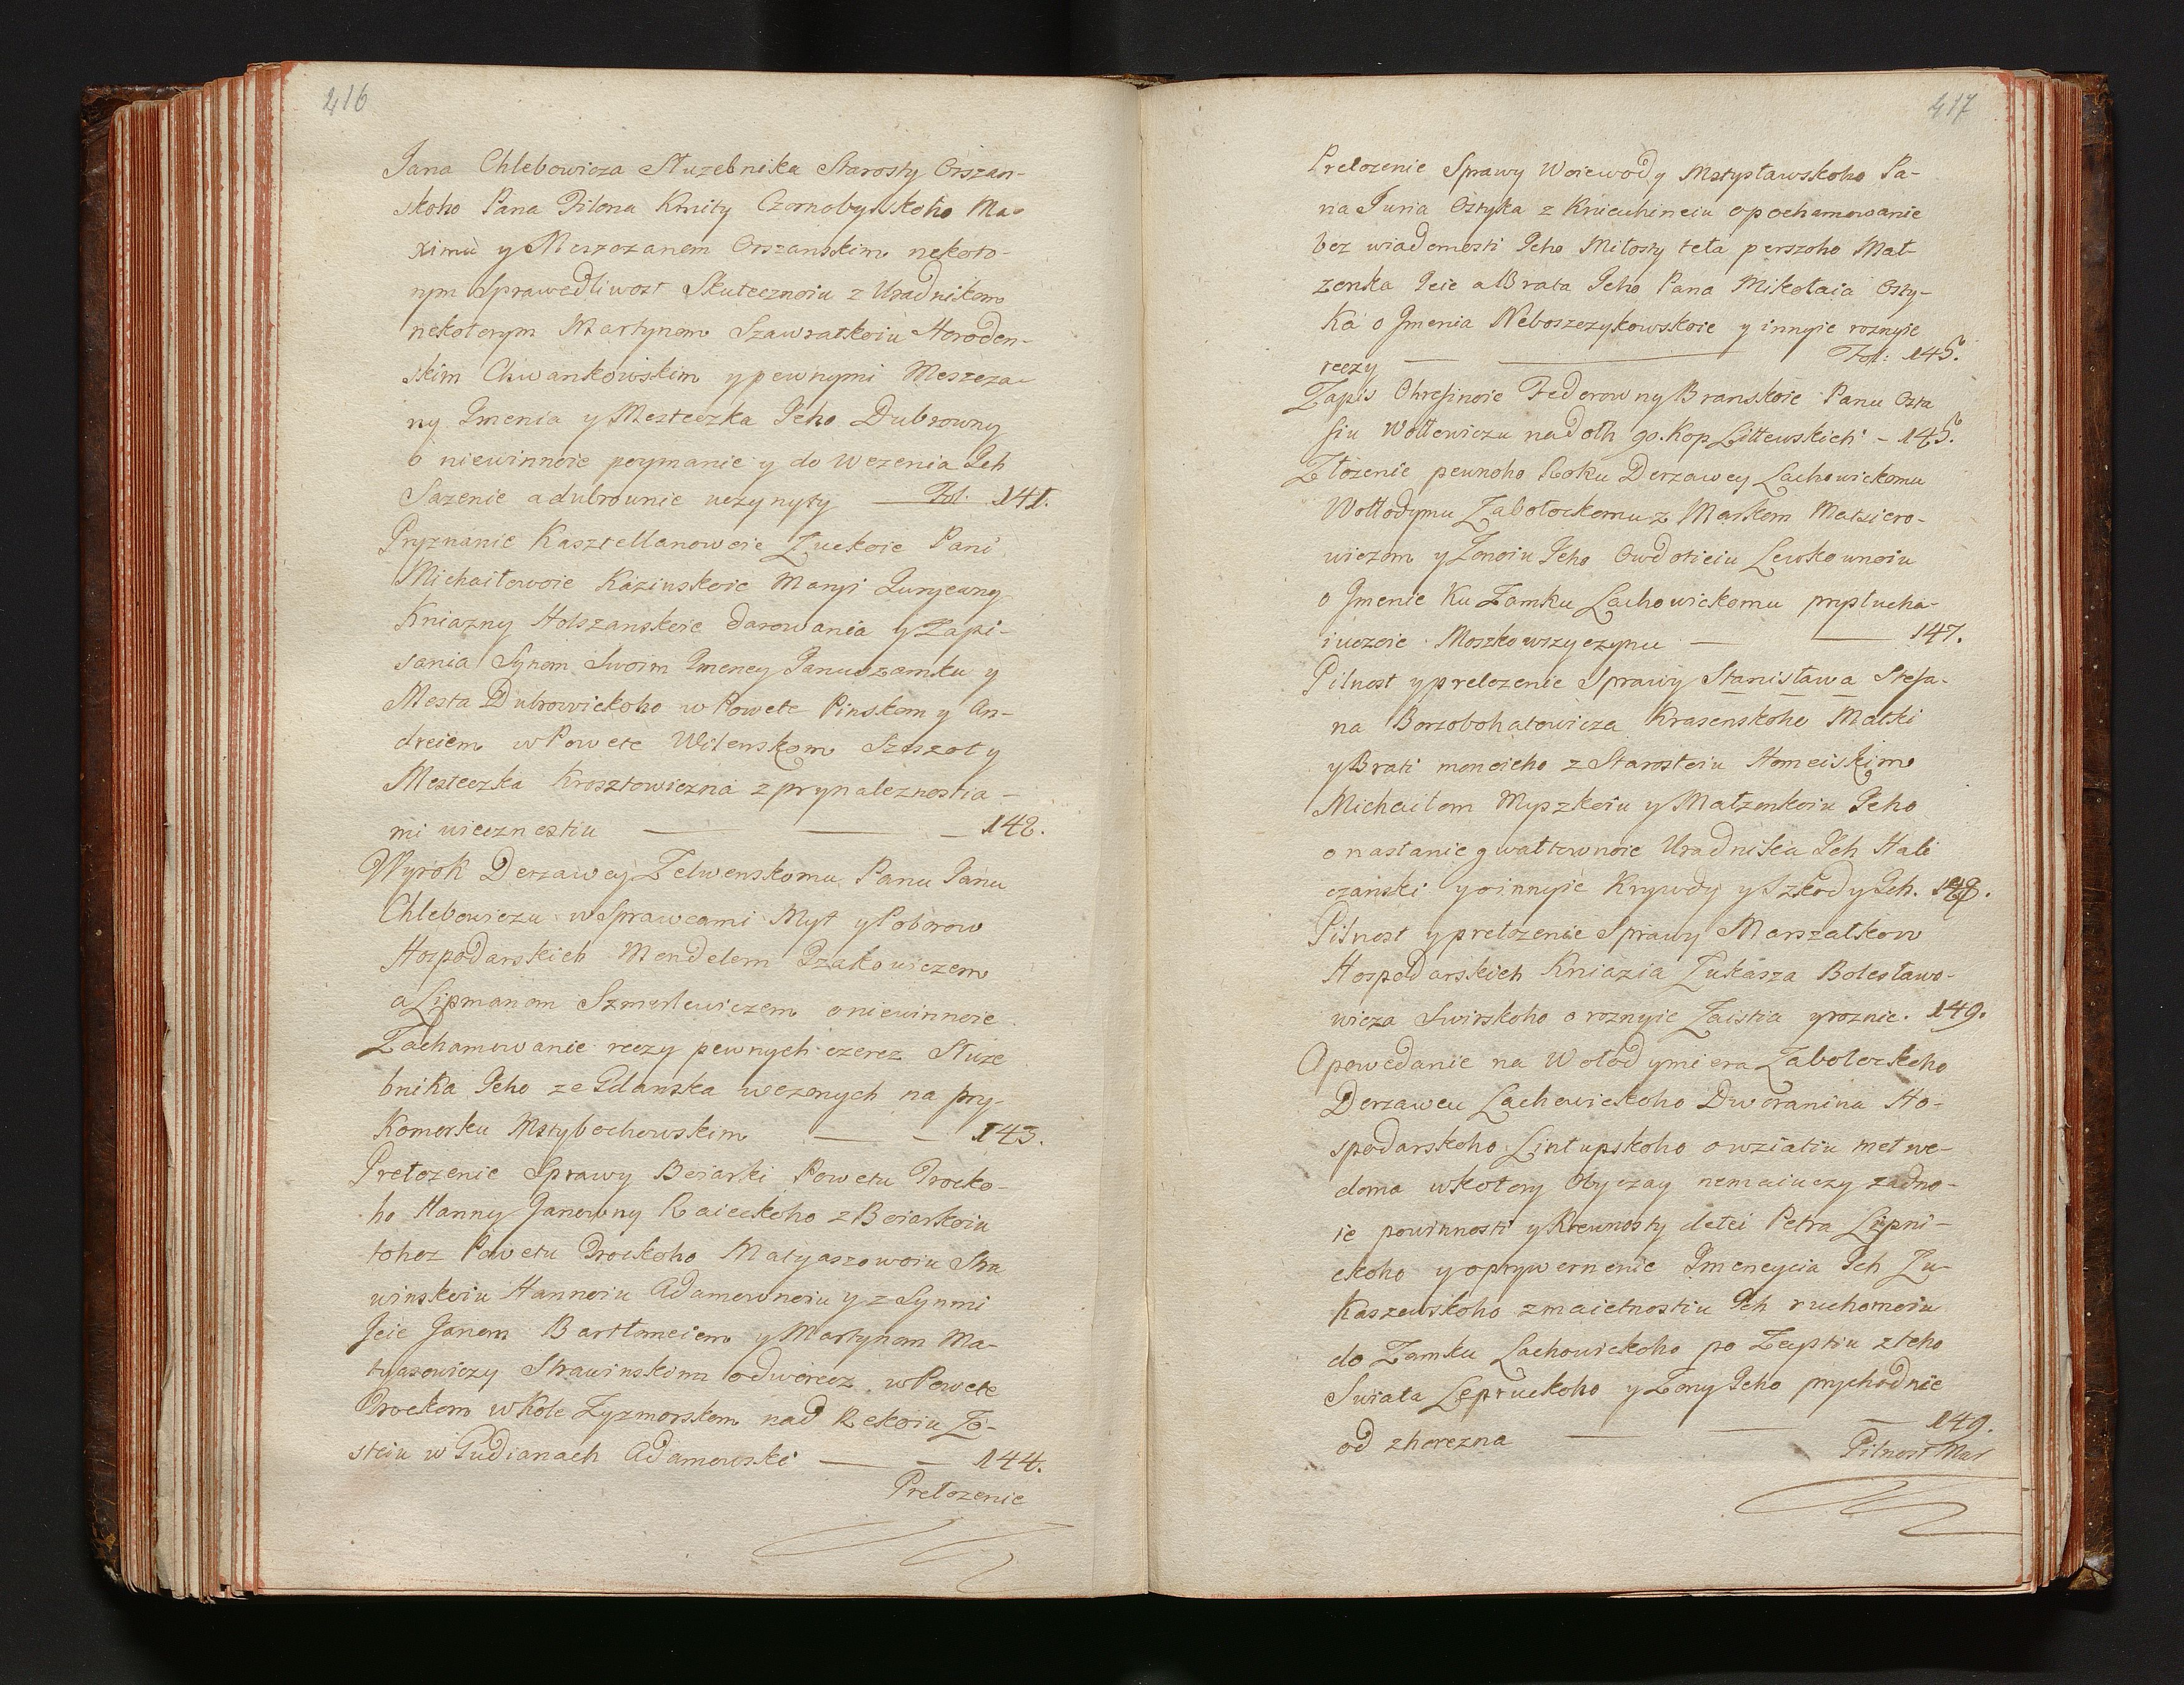 416
Jana Chlebowicza Służebnika Starosty Orszan-
skoho Pana Filona Kmity Czornobylskoho Ma-
ximu y Meszczanem Orszanskim nekoto-
rym Sprawedliwost Skutecznoiu z Uradnikom
nekotorym Martynom Szawratkoiu Horoden-
skim Chwankowskim y pewnymi Meszcza-
ny Jmenia y Mesteczka Jeho Dubrowny
o niewinnoie poymanie y do Wezenia Jch
Sazenie a dubrownie uczynyty — Fol. 141.
Pryznanie Kasztellanowoie Łuckoie Pani
Michaiłowoie Kozinskoie Maryi Juryewny
Kniazny Holszanskoie darowania y Zapi-
sania Synom Swoim Jmeney Januszamku y
Mesta Dubrowickoho w Powete Pinskom y An-
dreiem w Powete Wilenskom Szeszoł y
Mesteczka Krosztowiczna z prynaleznostia-
mi wiecznostiu — — — 142.
Wyrok Derzawcy Zelwenskomu Panu Janu
Chlebowiczu w Sprawcami Myt y Poborow
Hospodarskich Mendelem Jzakowiczem
a Lipmanom Szmerlewiczem o niewinnoie
Zachamowanie reczy pewnych czerez Służe
bnika Jeho ze Gdanska wezonych na pry-
Komorku Mstybochowskim — — 143.
Prełozenie Sprawy Boiarki Powetu Trocko-
ho Hanny Janowny Raieckoho z Boiarkoiu
tohoz Powetu Trockoho Matyaszowoiu Stra
winskoiu Hannoiu Adamownoiu y z Synmi
Jeie Janem Bartłomeiem y Martynom Ma-
tyasowiczy Strawinskimi o dworecz w Powete
Trockom w Kole Zyzmorskom nad Rekoiu Ło-
steiu w Gudianach Adamowski — — 144.
Prełozenie
417
Prelozenie Sprawy Woiewody Mstysławskoho Pa-
na Juria Ostyka z Knieuhineiu o pochamowanie
bez wiadomosti Jeho Miłosty teła perszoho Mał-
zonka Jeie a Brata Jeho Pana Mikołaia Osty-
Ka o Jmenia Neboszczykowskoie y innyie roznyie
reczy — — Fol: 145.
Zapis Ohrefinoie Fedorowny Branskoie Panu Osta
fiu Wołłowiczu na dołh 90. Kop Littewskich - 145.
Złozenie pewnoho Roku Derzawcy Lachowickomu
Wołłodymu Zabołockomu z Markom Matsiero-
wiczom y Zonoiu Jeho Owdotieiu Lewkownoiu
o Jmenie Ku Zamku Lachowickomu prysłucha-
iuczoie Moszkowszyczynu — — 147.
Pilnost y prelozenie Sprawy Stanisława Stefa-
na Borzobohatowicza Krasenskoho Matki
y Brati monoieho z Starosteiu Homeiskim
Michaiłom Myszkoiu y Małzonkoiu Jeho
o nasłanie gwałtownoie Uradnika Jch Hali
czanski y o innyie Krywdy y Szkody Jch. 148.
Pilnost y prełozenie Sprawy Marszałkow
Hospodarskich Kniazia Łukasza Bolesławo-
wicza Swirskoho o roznyie Zaistia y roznie. 149.
Opowedanie na Wołodymiera Zabołockoho
Derzawcu Lachowickoho Dworanina Ho-
spodarskoho Lintupskoho o wziatiu met we-
doma w kotory Obyczay nemaiuczy zadno-
ie powinnosti y Krewnosty detei Petra Lipni-
ckoho y o prywernenie Jmeneycia Jch Łu-
Kaszewskoho z maietnostiu Jch ruchomoiu
do Zamku Lachowickoho po Zeystiu z toho
Swiata Lepruckoho y Zony Jeho prychodnie
od zhorezna — — — 149.
Pilnost Mał